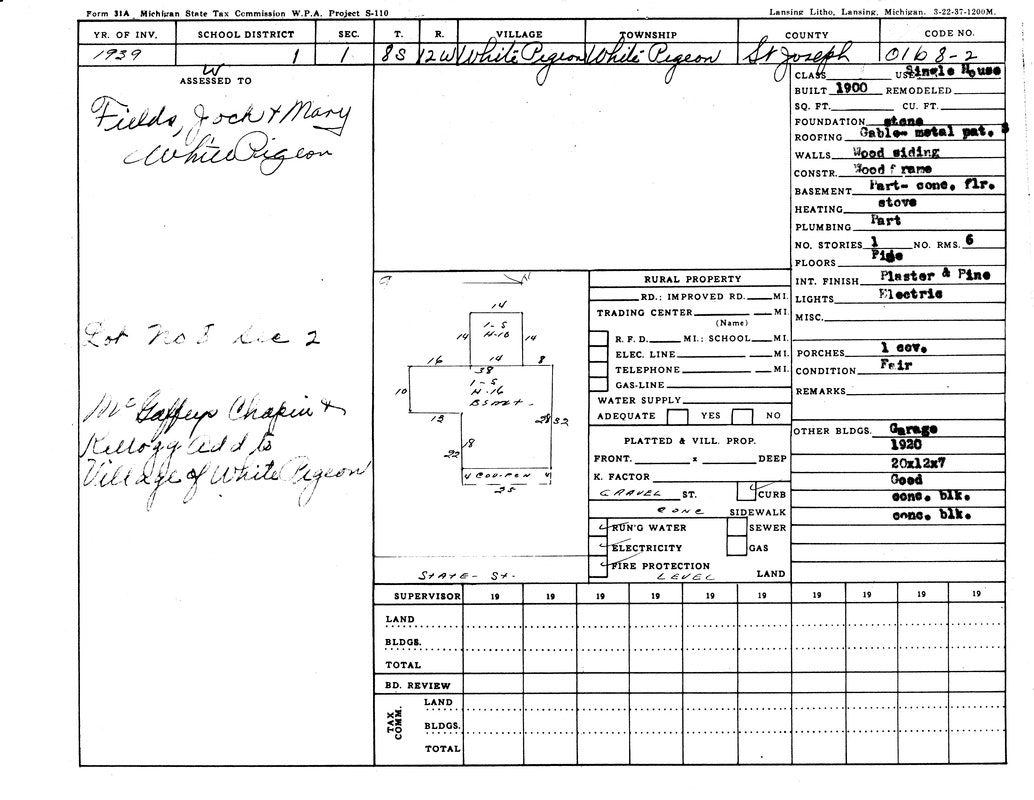 Form 31A Michigan State Tax Commission W.P.A. Project S-110
Lansing Litho, Lansing, Michigan. 3-22-37-1200M.
YR. OF INV. SCHOOL DISTRICT SEC. T. R. VILLAGE TOWNSHIP COUNTY CODE NO.
1939 1 1 8S 12W White Pigeon White Pigeon St Joseph 01b 8-2
W
ASSESSED TO
Fields, Jock & Mary
White Pigeon
Lot No 5 Sec 2
McGaffeys Chapin &
Kellogg Add to
Village of White Pigeon
CLASS USE Single House
BUILT 1900 REMODELED
SQ. FT. CU. FT.
FOUNDATION stone
ROOFING Gable- metal pat. S
WALLS Wood siding
CONSTR. Wood frame
BASEMENT Part- conc. flr.
HEATING stove
PLUMBING Part
NO. STORIES 1 NO. RMS. 6
FLOORS Pine
INT. FINISH Plaster & Pine
LIGHTS Electric
MISC.
PORCHES 1 cov.
CONDITION Fair
REMARKS
OTHER BLDGS. Garage
1920
20x12x7
Good
conc. blk.
conc. blk.
N
14
14 1-S 14
H-10
16 14 8
38
10 1-S
H-16
BSMT-
12 28 32
18
22
4 COV-PCH 4
25
STATE- St.
RURAL PROPERTY
RD.: IMPROVED RD. MI.
TRADING CENTER MI.
(Name)
R. F. D. MI.: SCHOOL MI.
ELEC. LINE MI.
TELEPHONE MI.
GAS-LINE
WATER SUPPLY
ADEQUATE YES NO
PLATTED & VILL. PROP.
FRONT. x DEEP
K. FACTOR
GRAVEL ST. CURB
CONC SIDEWALK
RUN'G WATER SEWER
ELECTRICITY GAS
FIRE PROTECTION
LEVEL LAND
SUPERVISOR 19 19 19 19 19 19 19 19 19 19
LAND
BLDGS.
TOTAL
BD. REVIEW
TAX COMM.
LAND
BLDGS.
TOTAL